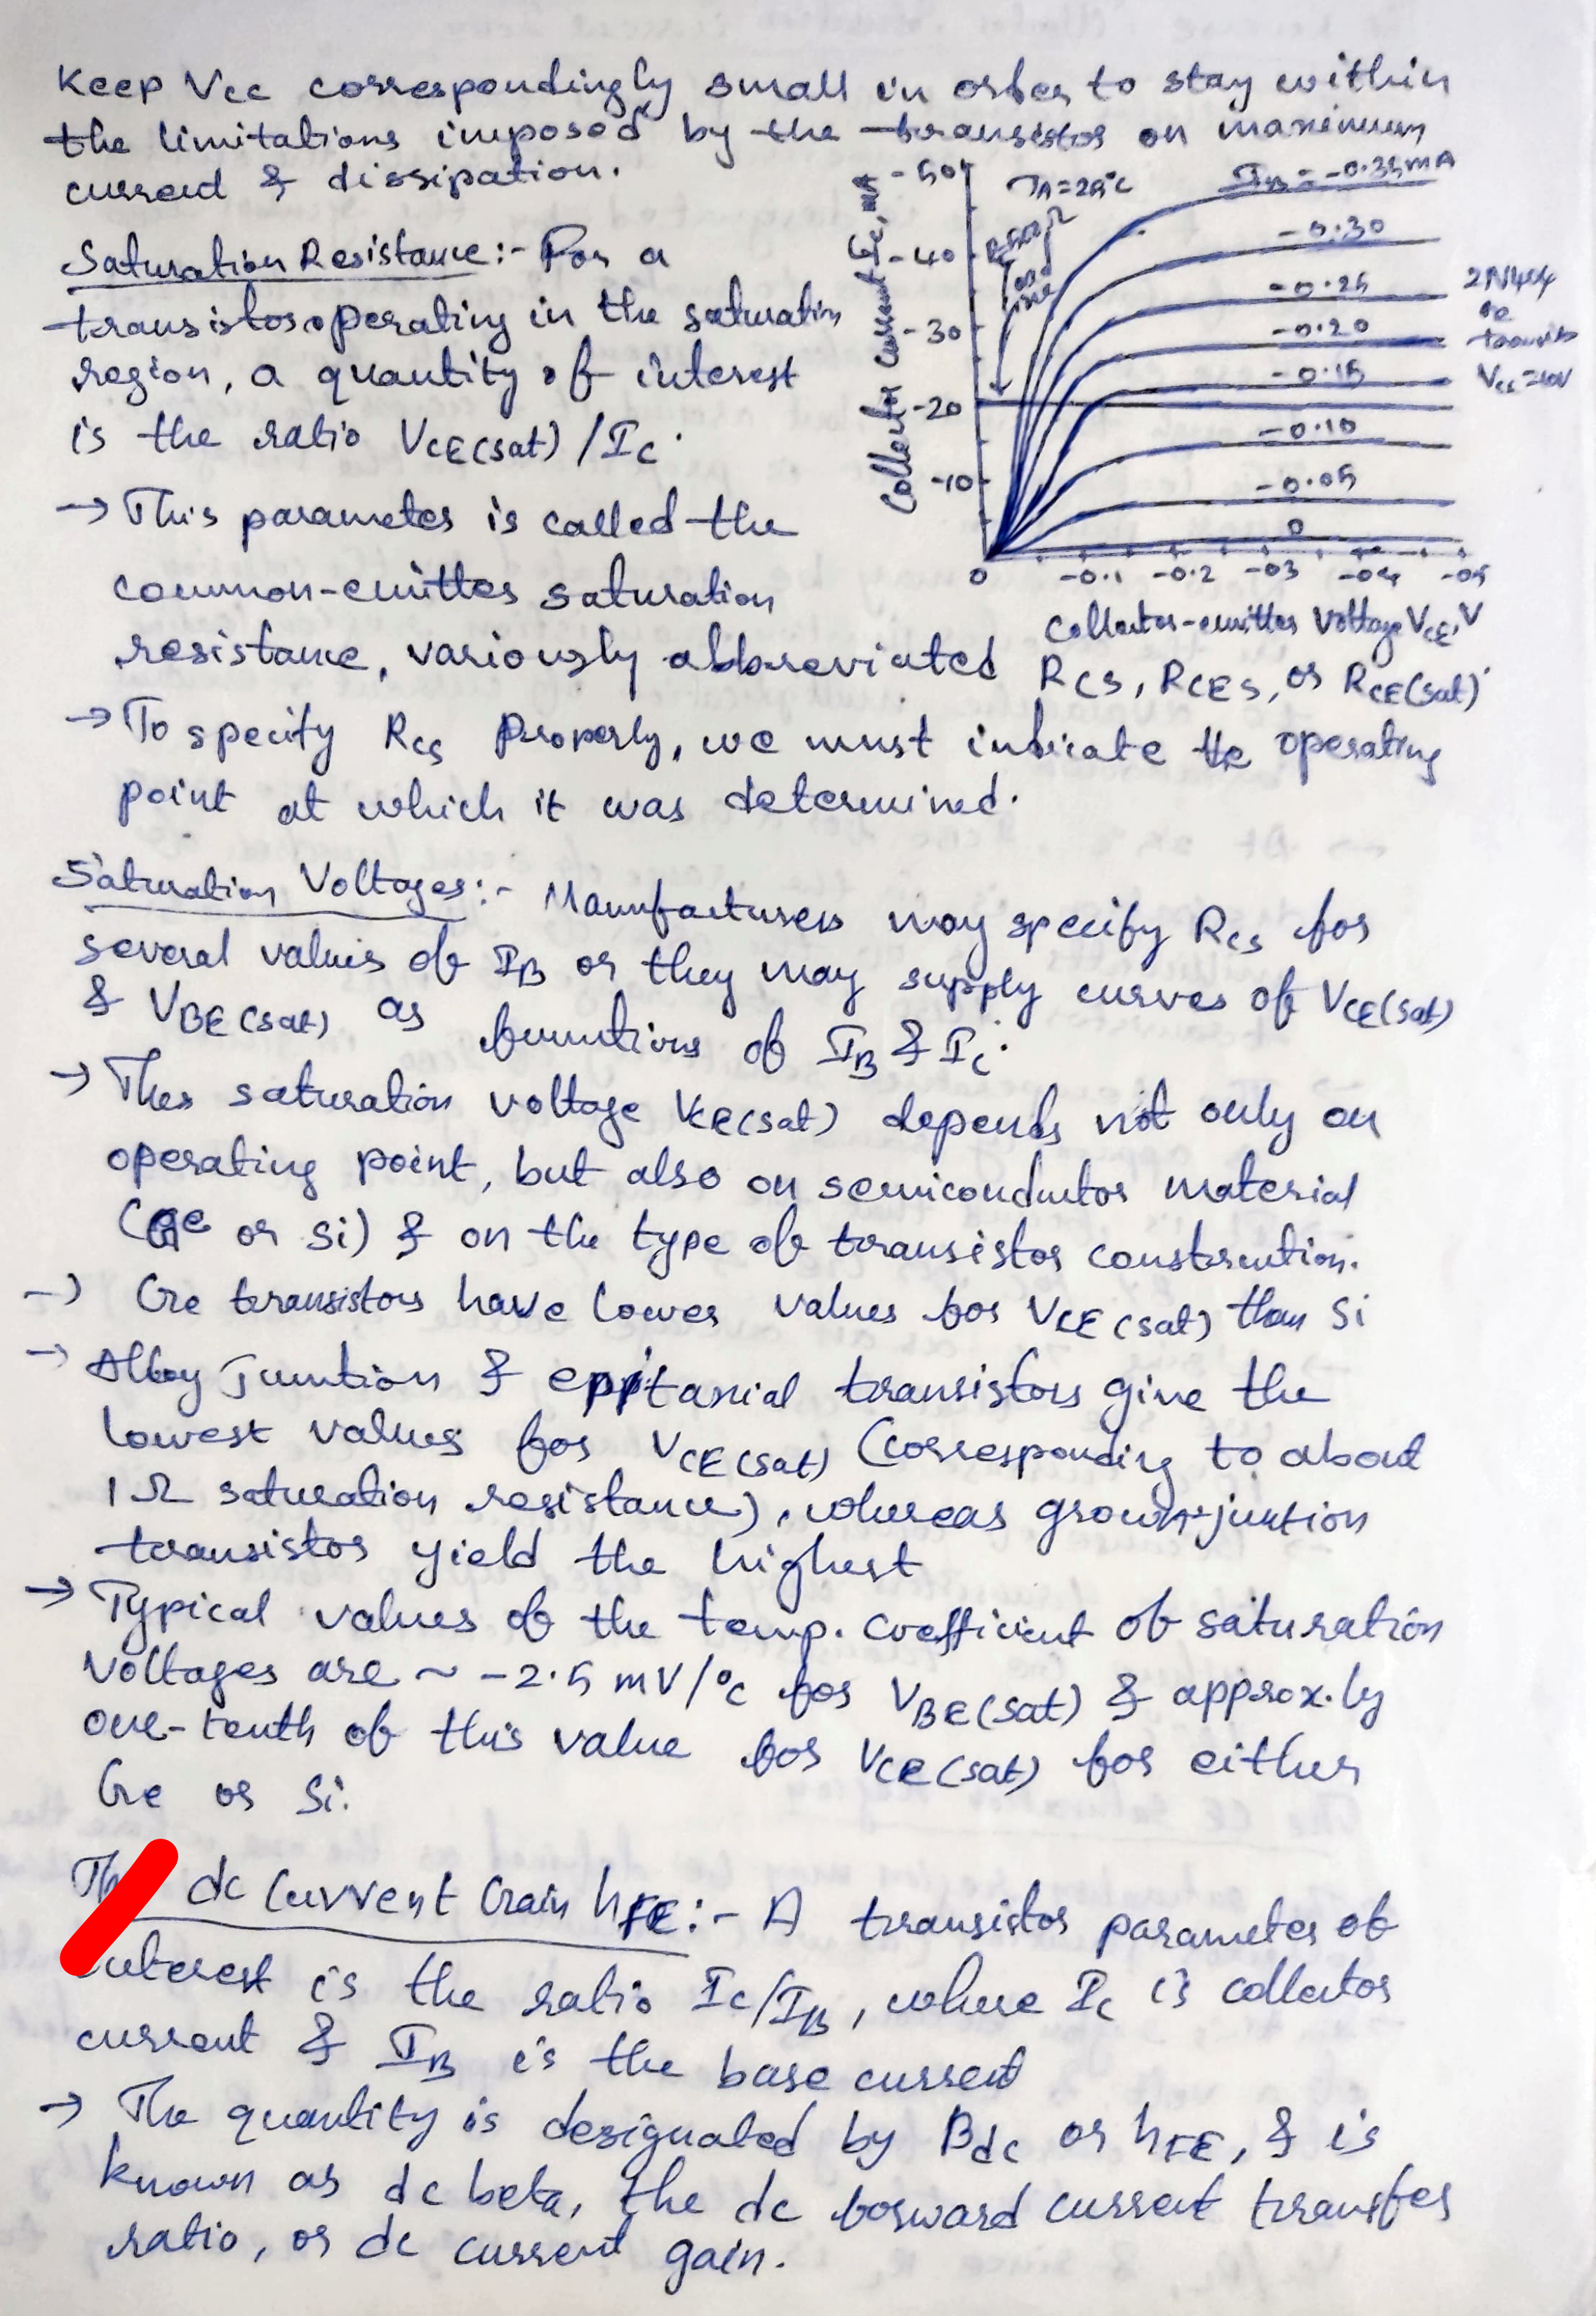 Keep Vcc correspondingly small in order to stay within
the limitations imposed by the transistor on maximum
current & dissipation.
Saturation Resistance:- For a
transistor operating in the saturation
region, a quantity of interest
is the ratio VCE(sat)/IC.
→ This parameter is called the
common-emitter saturation
resistance, variously abbreviated RCS, RCES, or RCE(sat).
Collector Current IC, mA
-50
-40
-30
-20
-10
0
TA=25°C
Load
line
IB = -0.35mA
-0.30
-0.25
-0.20
-0.15
-0.10
-0.05
0
2N404
Ge
Vcc=10V
0 -0.1 -0.2 -03 -04 -05
Collector-emitter Voltage VCE, V
→ To specify RCS Properly, we must indicate the operating
point at which it was determined.
Saturation Voltages:- Manufacturers may specify RCS for
several values of IB or they may supply curves of VCE(sat)
& VBE(sat) as functions of IB & IC.
→ The saturation voltage VCE(sat) depends not only on
operating point, but also on semiconductor material
(Ge or Si) & on the type of transistor construction.
→ Ge transistors have lower values for VCE(sat) than Si
→ Alloy Junction & epitaxial transistors give the
lowest values for VCE(sat) (corresponding to about
1Ω saturation resistance), whereas grown-junction
transistor yield the highest
→ Typical values of the temp. coefficient of saturation
voltages are ~ -2.5 mV/°C for VBE(sat) & approx.ly
one-tenth of this value for VCE(sat) for either
Ge or Si.
dc Current Gain hFE:- A transistor parameter of
interest is the ratio IC/IB, where IC is collector
current & IB is the base current
→ The quantity is designated by Bdc or hFE, & is
known as dc beta, the dc forward current transfer
ratio, or dc current gain.